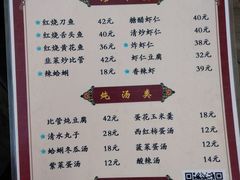 红烧刀鱼 42元 糖醋虾仁 40元
★红烧舌头鱼 40元 清炒虾仁 40元
★红烧黄花鱼 36元 ★炸虾仁 38元
韭菜炒比管 42元 虾仁豆腐 32元
★辣蛤蜊 18元 ★香辣虾 39元
炖汤类
比管炖豆腐 42元 蛋花玉米羹 18元
★清水丸子 28元 西红柿蛋汤 12元
★蛤蜊冬瓜汤 18元 菠菜蛋汤 12元
紫菜蛋汤 12元 酸辣汤 14元